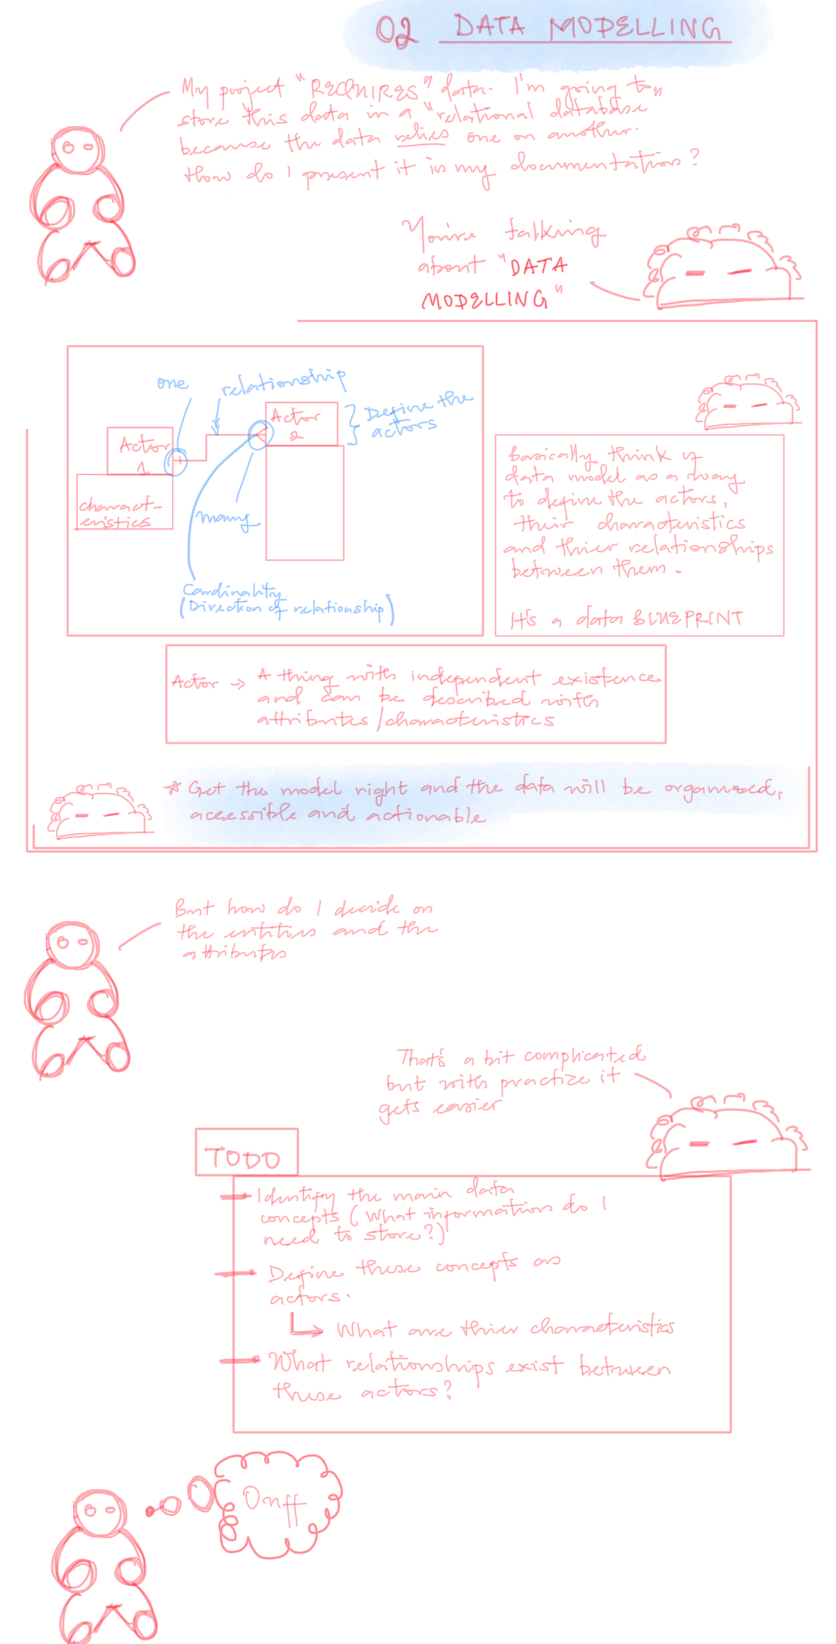 02 DATA MODELLING
My project "REQUIRES" data. I'm going to
store this data in a "relational database"
because the data relies one on another.
How do I present it in my documentation?
You're talking
about "DATA
MODELLING"
one
relationship
Actor
1
Actor
2
Define the
actors
charact-
eristics
many
Cardinality
(Direction of relationship)
Basically think of
data model as a way
to define the actors,
their characteristics
and thier relationships
between them.
It's a data BLUEPRINT
Actor → A thing with independent existence
and can be described with
attributes/characteristics
* Get the model right and the data will be organised,
accessible and actionable
But how do I decide on
the entities and the
attributes
That's a bit complicated
but with practize it
gets easier
TODO
- Identify the main data
concepts (What information do I
need to store?)
- Define these concepts as
actors.
↳ What are thier characteristics
- What relationships exist between
these actors?